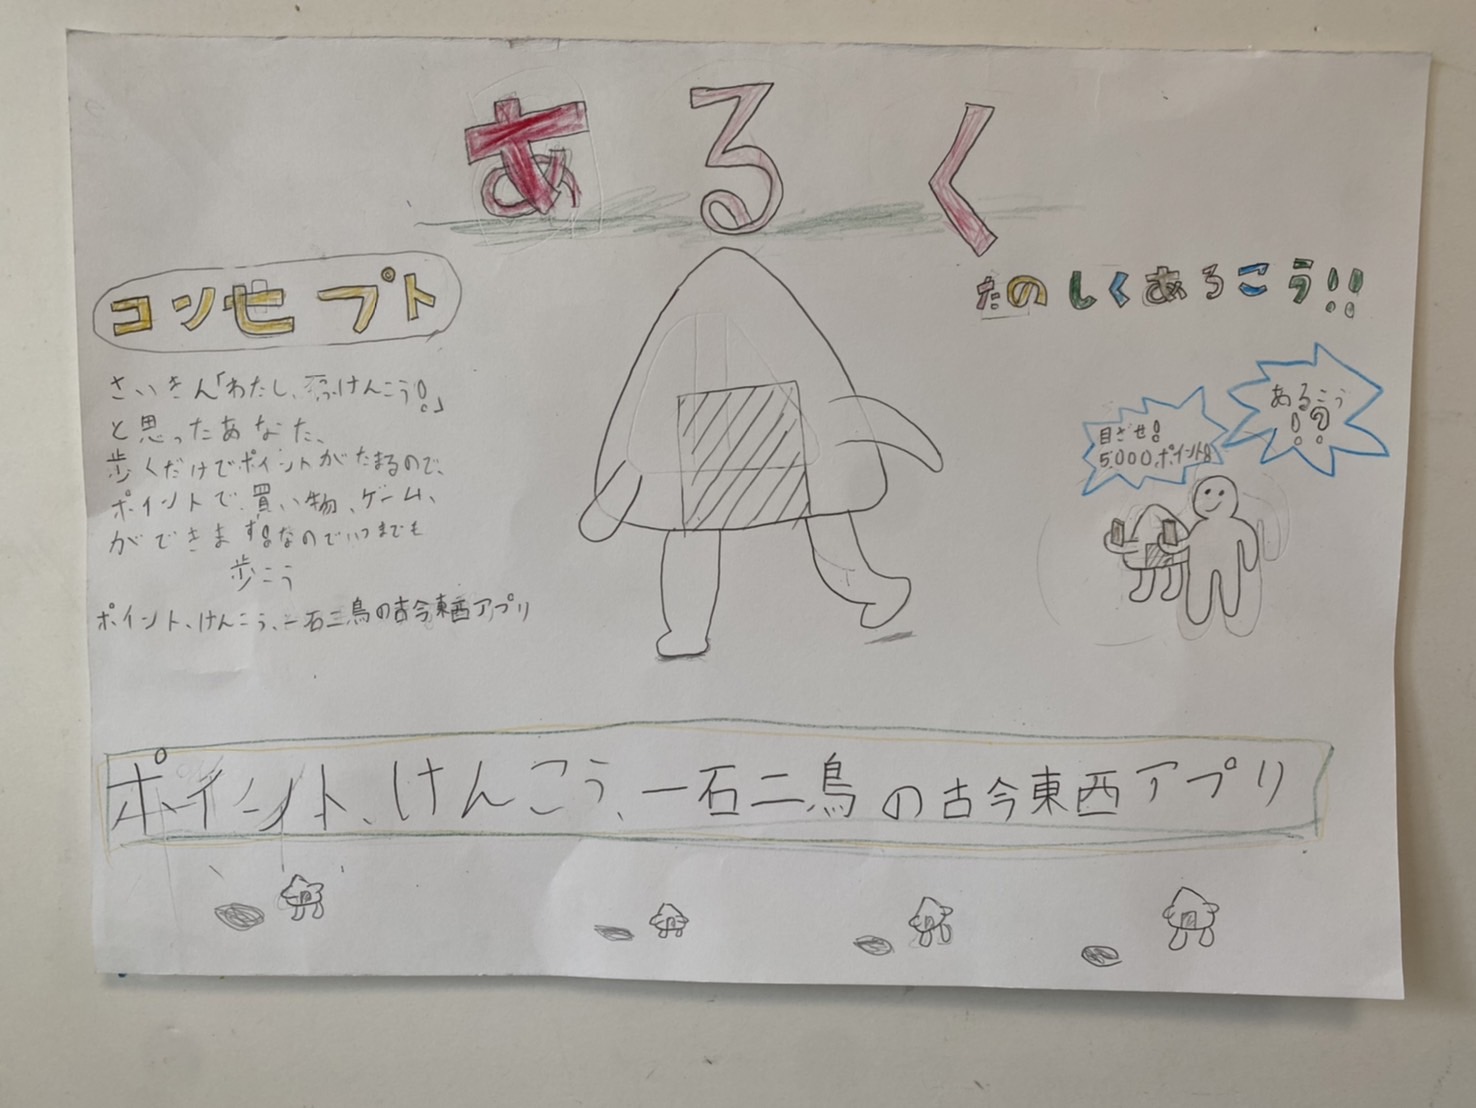 あるく
コンセプト
さいきん「わたし、不けんこう!」
と思ったあなた、
歩くだけでポイントがたまるので、
ポイントで、買い物、ゲーム、
ができます!なのでいつまでも
歩こう
ポイント、けんこう、一石二鳥の古今東西アプリ
たのしくあろこう!!
目ざせ!
5,000ポイント!
あるこう
!?
ポイント、けんこう、一石二鳥の古今東西アプリ